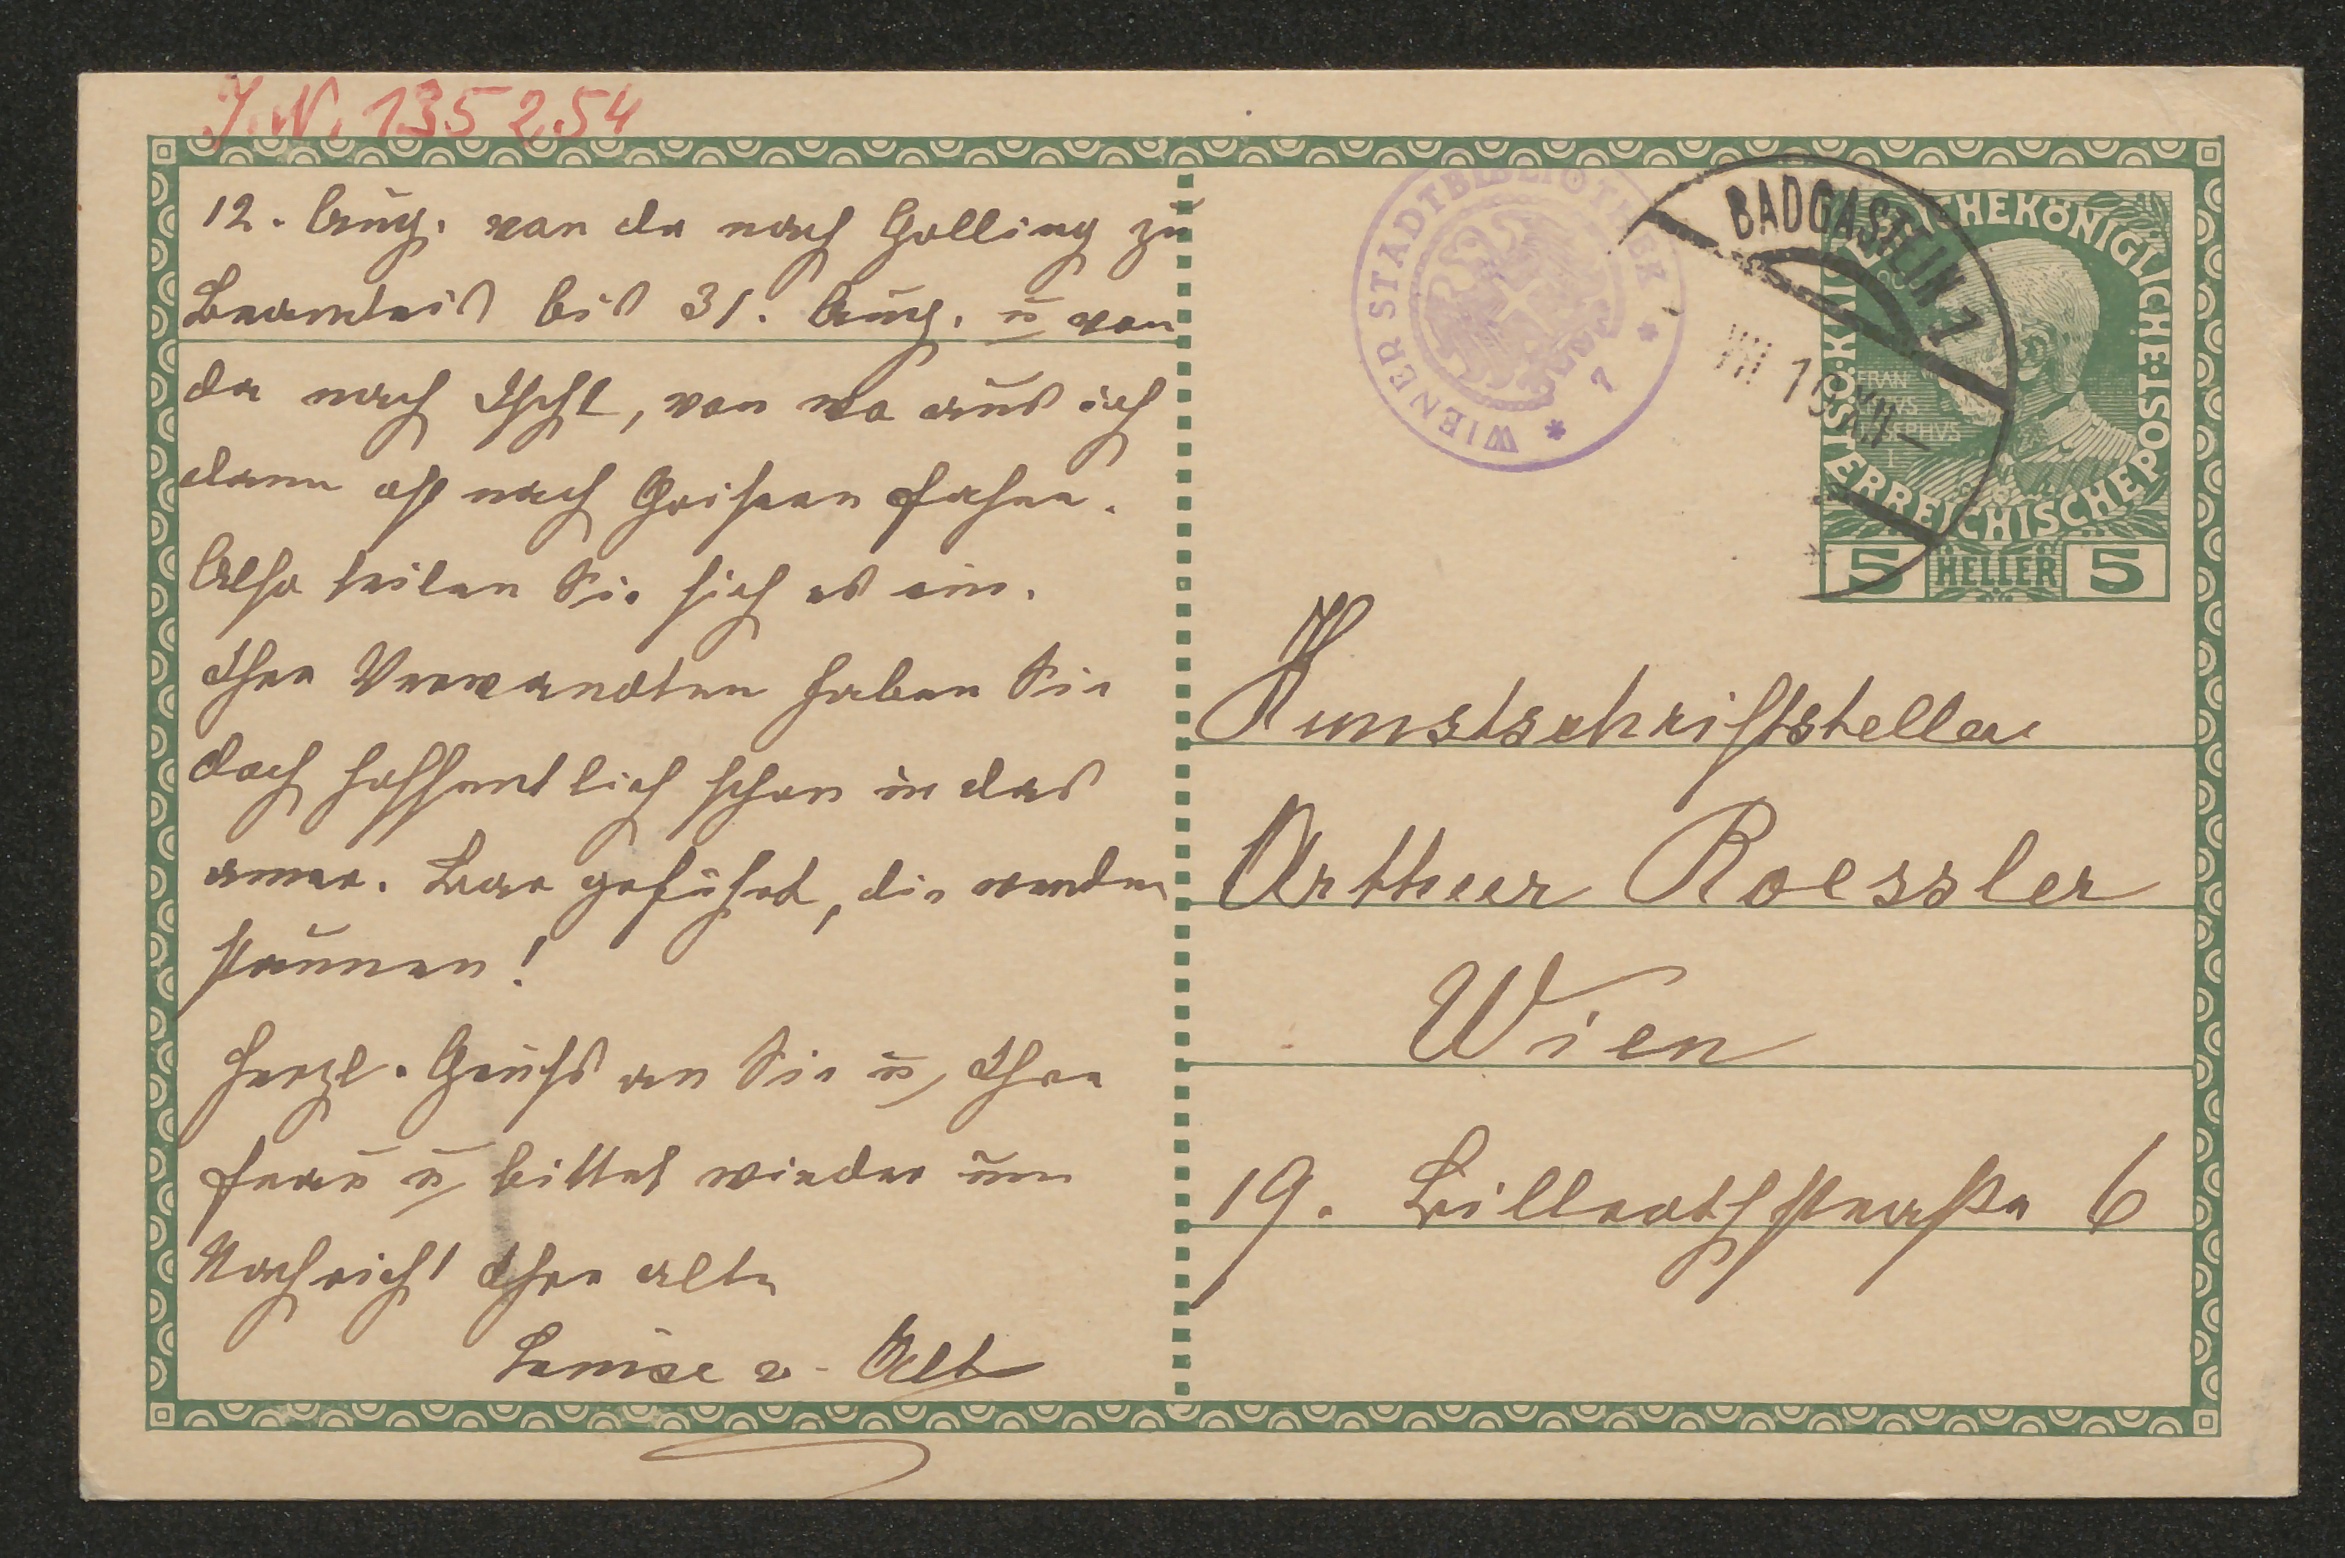 J.N. 135254
12. Aug. von da nach Golling zu
bis 31. Aug. u von
da nach Ischl, von wo aus ich
dann oft nach Goisern fahre.
Also teilen Sie sich es ein.
Ihre Verwandten haben Sie
doch hoffentlich schon in das
amer. Bar geführt, die werden
staunen!
Herzl. Grüße an Sie u Ihre
Frau u bittet wieder um
Nachricht Ihre alte
Louise v. Alt
WIENER STADTBIBLIOTHEK
BADGASTEIN 1
KAISERLICHEKÖNIGLICHE·ÖSTERREICHISCHEPOST
5 HELLER 5
Kunstschriftsteller
Arthur Roessler
Wien
19. Billrothstraße 6